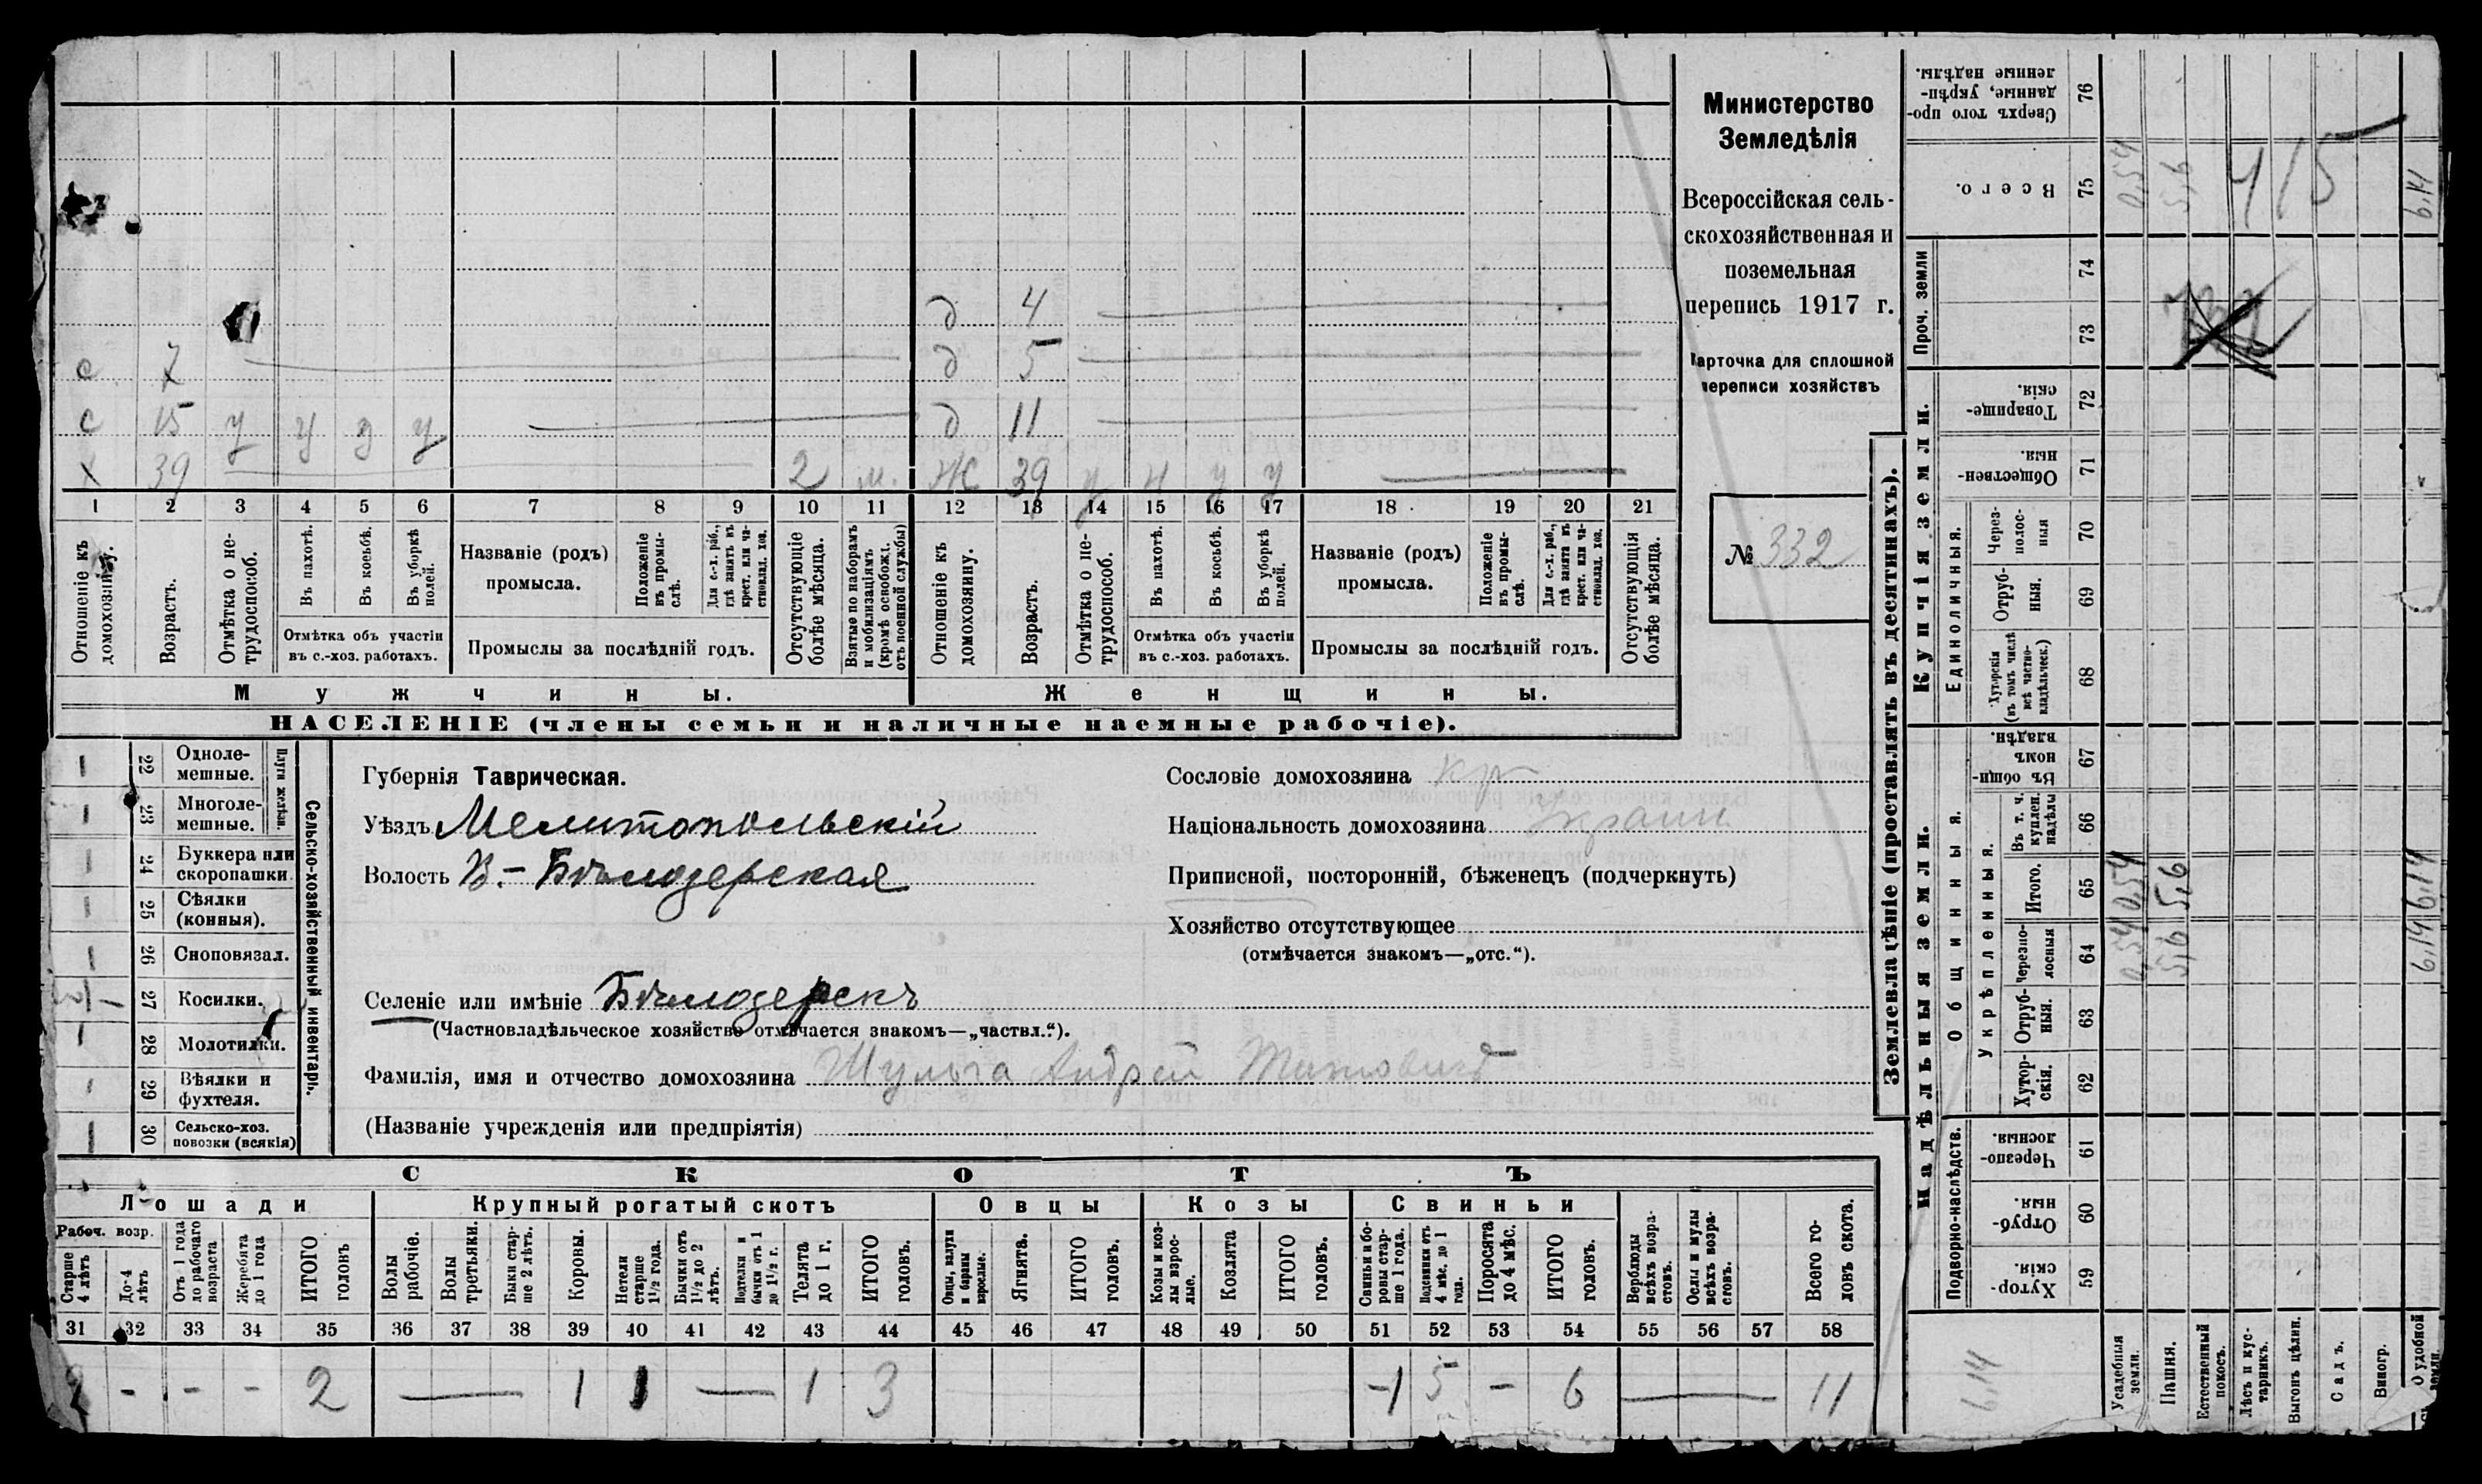 Министерство
Земледѣлія
Всероссійская сель-
скохозяйственная и
поземельная
перепись 1917 г.
Карточка для сплошной
переписи хозяйствъ
№ 332
д 4
с 7 д 5
с 15 у у д у д 11
х 39 2 м. Ж 39 у н у у
1 2 3 4 5 6 7 8 9 10 11 12 13 14 15 16 17 18 19 20 21
Отношеніе къ домохозяину.
Возрастъ.
Отмѣтка о не-трудоспособ.
Въ пахотѣ.
Въ косьбѣ.
Въ уборкѣ полей.
Отмѣтка объ участіи
въ с.-хоз. работахъ.
Названіе (родъ)
промысла.
Положеніе въ промы-слѣ.
Для с.-х. раб., гдѣ занятъ въ крест. или ча-стновлад. хоз.
Промыслы за послѣдній годъ.
Отсутствующіе болѣе мѣсяца.
Взятые по наборамъ и мобилизаціямъ (кромѣ освобожд. отъ военной службы)
Отношеніе къ домохозяину.
Возрастъ.
Отмѣтка о не-трудоспособ.
Въ пахотѣ.
Въ косьбѣ.
Въ уборкѣ полей.
Отмѣтка объ участіи
въ с.-хоз. работахъ.
Названіе (родъ)
промысла.
Положеніе въ промы-слѣ.
Для с.-х. раб., гдѣ занята въ крест. или ча-стновлад. хоз.
Промыслы за послѣдній годъ.
Отсутствующія болѣе мѣсяца.
Мужчины.
Женщины.
НАСЕЛЕНІЕ (члены семьи и наличные наемные рабочіе).
Сельско-хозяйственный инвентарь.
Плуги желѣзн.
22 Одноле-
мешные.
23 Многоле-
мешные.
24 Буккера или
скоропашки.
25 Сѣялки
(конныя).
26 Сноповязал.
27 Косилки.
28 Молотилки.
29 Вѣялки и
фухтеля.
30 Сельско-хоз.
повозки (всякія)
Губернія Таврическая.
Уѣздъ Мелитопольскій
Волость В.-Бѣлозерская
Селеніе или имѣніе Бѣлозерскъ
(Частновладѣльческое хозяйство отмѣчается знакомъ—„частвл.“).
Фамилія, имя и отчество домохозяина Шульга Андрей Титовичъ
(Названіе учрежденія или предпріятія)
Сословіе домохозяина кр
Національность домохозяина Украин
Приписной, посторонній, бѣженецъ (подчеркнуть)
Хозяйство отсутствующее
(отмѣчается знакомъ—„отс.“).
СКОТЪ
Лошади
Крупный рогатый скотъ
Овцы
Козы
Свиньи
Рабоч. возр.
Старше 4 лѣтъ
До-4 лѣтъ
Отъ 1 года до рабочаго возраста
Жеребята до 1 года
ИТОГО головъ
Волы рабочіе.
Волы третьяки.
Быки стар-ше 2 лѣтъ.
Коровы.
Нетели старше 1½ года.
Бычки отъ 1½ до 2 лѣтъ.
Подтелки и бычки отъ 1 до 1½ г.
Телята до 1 г.
ИТОГО головъ.
Овцы, валухи и бараны взрослые.
Ягнята.
ИТОГО головъ.
Козы и коз-лы взрос-лые.
Козлята
ИТОГО головъ.
Свиньи и бо-ровы стар-ше 1 года.
Подсвинки отъ 4 мѣс. до 1 года.
Поросята до 4 мѣс.
ИТОГО головъ.
Верблюды всѣхъ возра-стовъ.
Ослы и мулы всѣхъ возра-стовъ.
Всего го-ловъ скота.
31 32 33 34 35 36 37 38 39 40 41 42 43 44 45 46 47 48 49 50 51 52 53 54 55 56 57 58
2 - - - 2 — 1 1 — 1 3 1 5 - 6 — 11
Землевладѣніе (проставлять въ десятинахъ).
Надѣльныя земли.
Купчія земли.
Проч. земли
Подворно-наслѣдств.
Общинныя.
Укрѣпленныя.
Единоличныя.
59 Хутор-скія.
60 Отруб-ныя.
61 Черезпо-лосныя.
62 Хутор-скія.
63 Отруб-ныя.
64 Черезпо-лосныя
65 Итого.
66 Въ т. ч. куплен. надѣлы
67 Въ общи-номъ владѣн.
68 Хуторскія (въ томъ числѣ всѣ частно-владѣльческ.)
69 Отруб-ныя.
70 Через-полос-ныя
71 Обществен-ныя.
72 Товарище-скія.
73
74
75 Всего.
76 Сверхъ того про-данные, укрѣп-ленные надѣлы.
Усадебныя земли.
0,54 0,54 0,54
Пашня.
5,6 5,6 5,6
Естественный покосъ.
Лѣсъ и кус-тарникъ.
Выгонъ цѣлин.
Садъ.
Виногр.
О удобной земли.
6,14 6,14 6,14
6,14
415